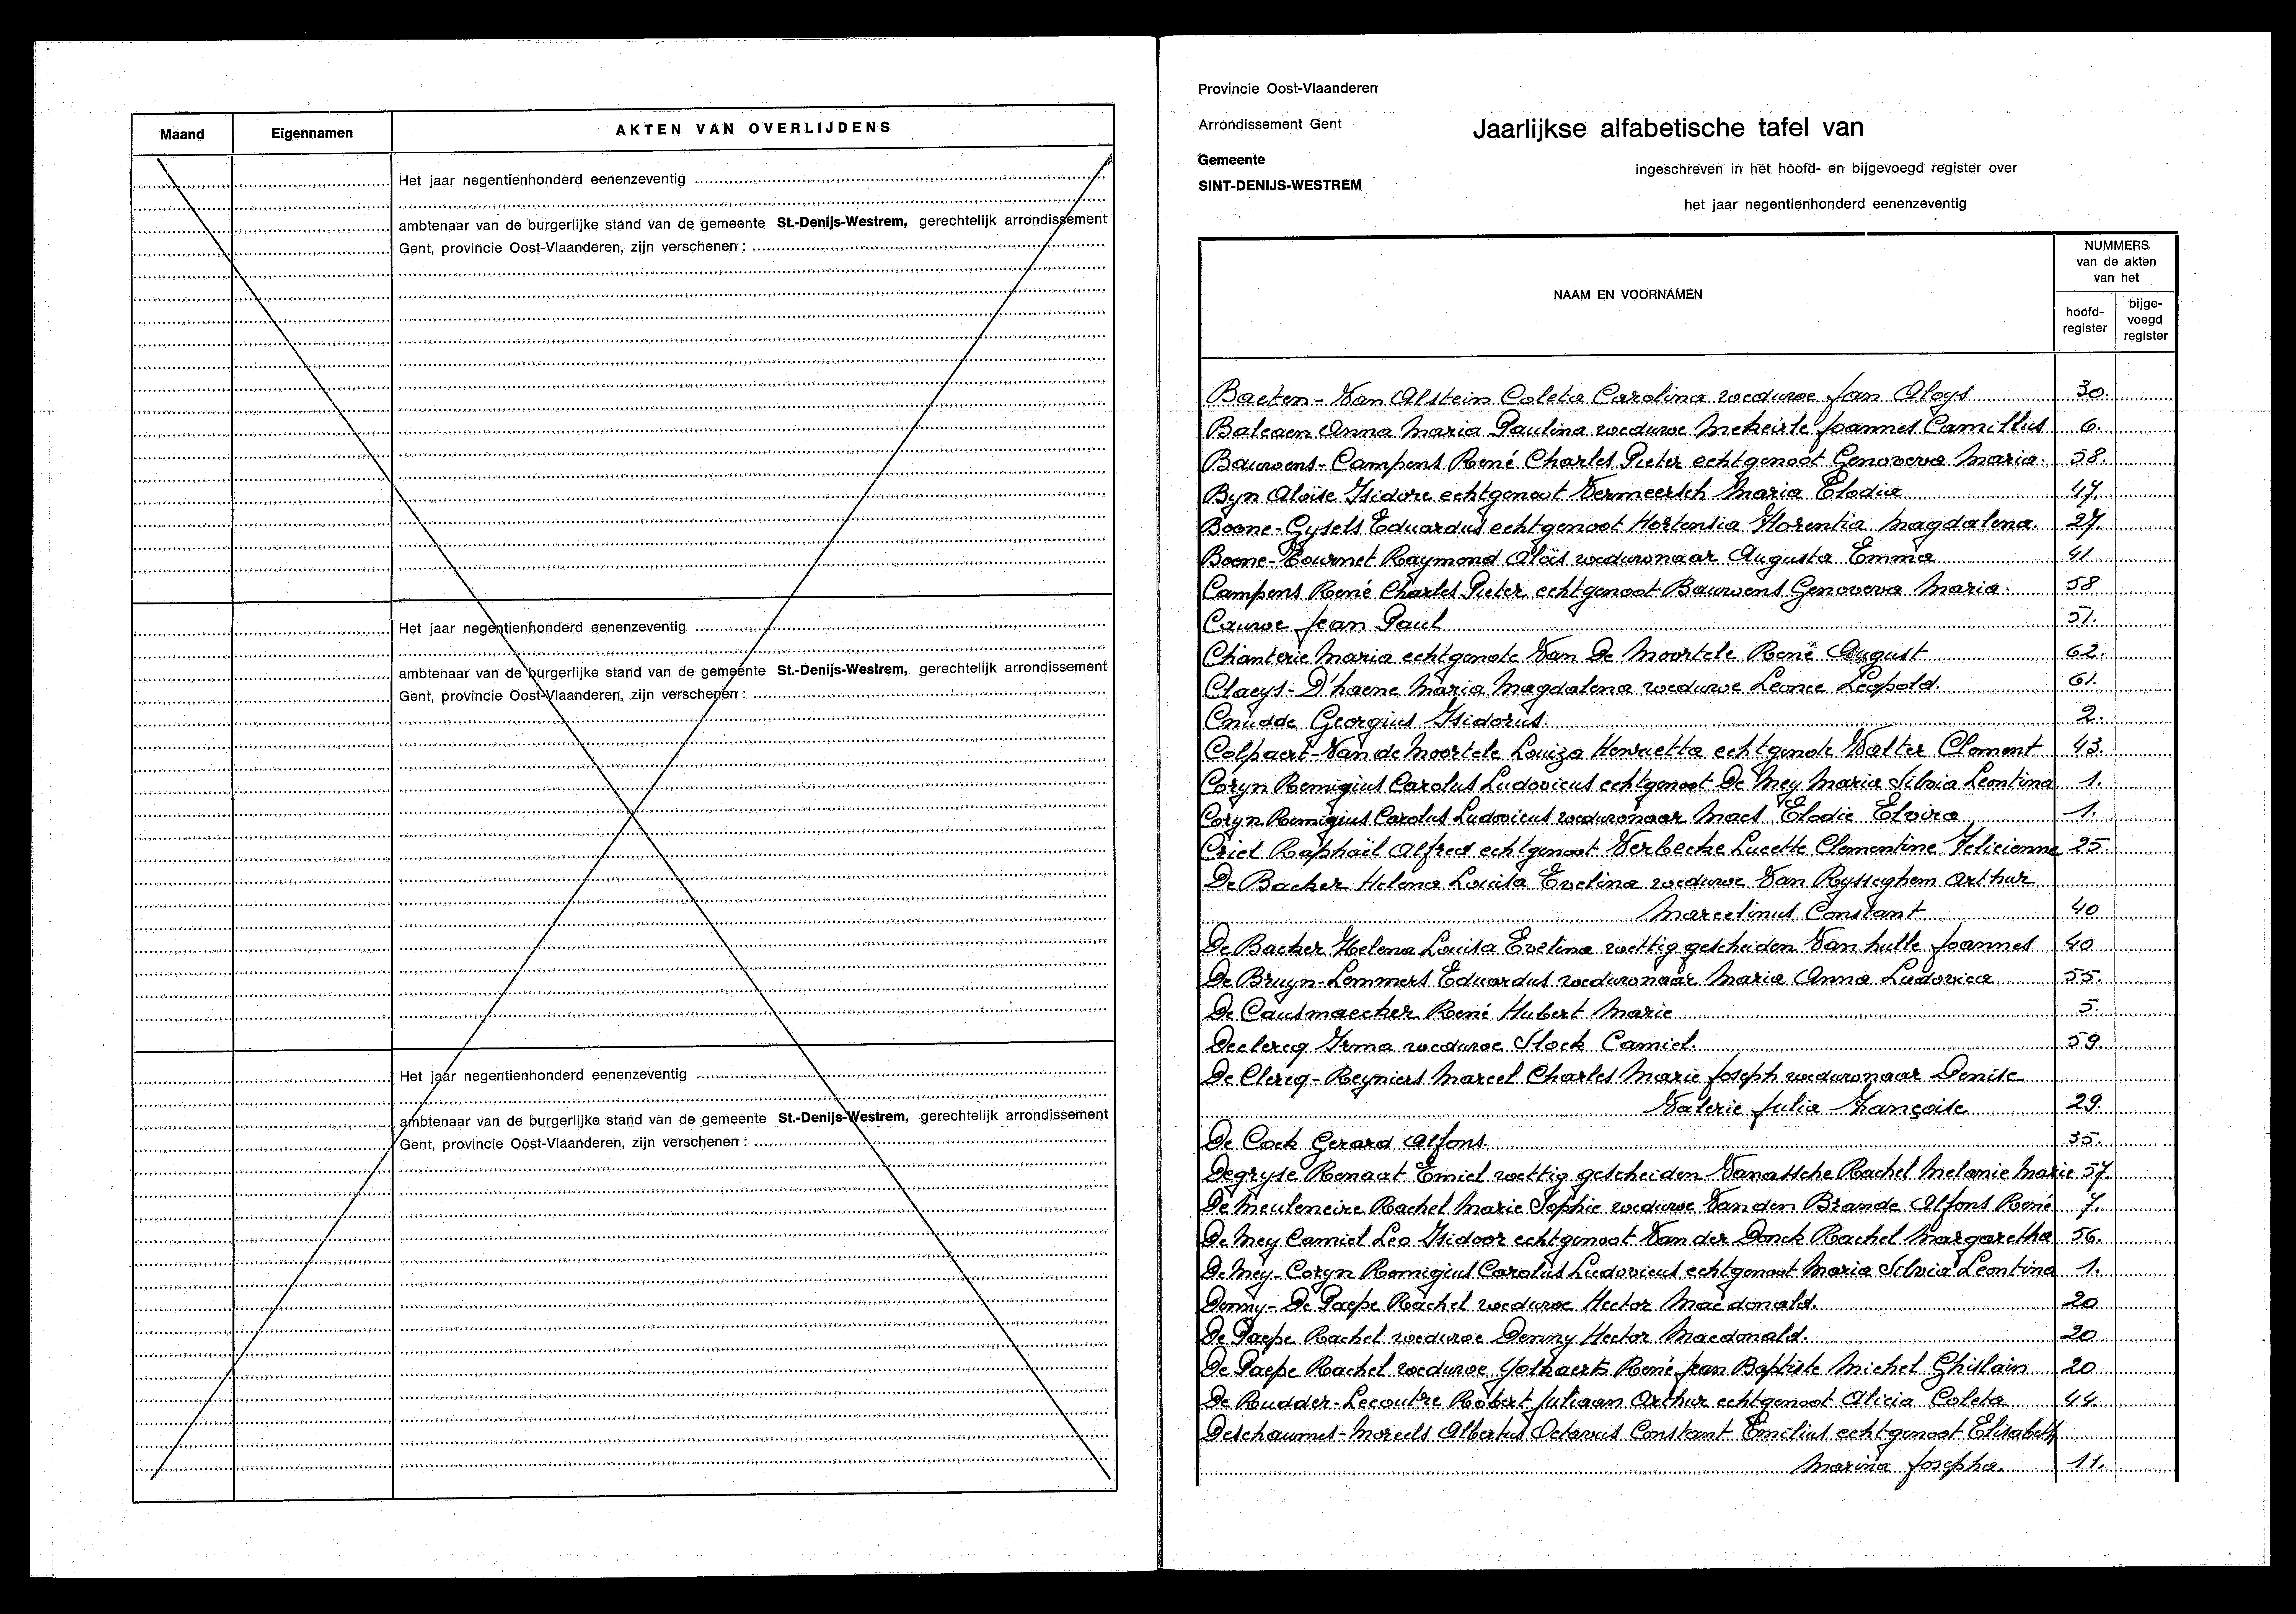 Maand Eigennamen AKTEN VAN OVERLIJDENS
Het jaar negentienhonderd eenenzeventig
ambtenaar van de burgerlijke stand van de gemeente St.-Denijs-Westrem, gerechtelijk arrondissement
Gent, provincie Oost-Vlaanderen, zijn verschenen :
Het jaar negentienhonderd eenenzeventig
ambtenaar van de burgerlijke stand van de gemeente St.-Denijs-Westrem, gerechtelijk arrondissement
Gent, provincie Oost-Vlaanderen, zijn verschenen :
Het jaar negentienhonderd eenenzeventig
ambtenaar van de burgerlijke stand van de gemeente St.-Denijs-Westrem, gerechtelijk arrondissement
Gent, provincie Oost-Vlaanderen, zijn verschenen :
Provincie Oost-Vlaanderen
Arrondissement Gent
Jaarlijkse alfabetische tafel van
Gemeente
SINT-DENIJS-WESTREM
ingeschreven in het hoofd- en bijgevoegd register over
het jaar negentienhonderd eenenzeventig
NAAM EN VOORNAMEN
NUMMERS
van de akten
van het
hoofd-
register
bijge-
voegd
register
Baeten - Van Alstein Coleta Carolina weduwe Jan Aloys 30.
Balcaen Anna Maria Paulina weduwe Mekeirle Joannes Camillus 6.
Bauwens - Campens René Charles Pieter echtgenoot Genoveva Maria. 58.
Byn Aloïse Isidore echtgenoot Vermeersch Maria Elodia 47.
Boone - Gysels Eduardus echtgenoot Hortensia Florentia Magdalena. 27.
Boone - Tournet Raymond Aloïs weduwnaar Augusta Emma 41
Campens René Charles Pieter echtgenoot Bauwens Genoveva Maria. 58
Cauwe Jean Paul 51.
Chanterie Maria echtgenote Van De Moortele René August 62.
Claeys - D'haene Maria Magdalena weduwe Leonce Leopold. 61.
Cnudde Georgius Isidorus. 2.
Colpaert - Van de Moortele Louiza Henrietta echtgenote Walter Clement 43.
Coryn Remigius Carolus Ludovicus echtgenoot De Mey Maria Silvia Leontina. 1.
Coryn Remigius Carolus Ludovicus weduwnaar Maes Elodie Elvira 1.
Criel Raphaël Alfred echtgenoot Verbecke Lucette Clementine Felicienne 25.
De Backer Helena Louisa Evelina weduwe Van Rysseghem Arthur
Marcelinus Constant 40
De Backer Helena Louisa Evelina wettig gescheiden Van hulle Joannes 40
De Bruyn - Lemmers Eduardus weduwnaar Maria Anna Ludovica 55.
De Causmaecker René Hubert Marie 5.
Declercq Irma weduwe Slock Camiel. 59.
De Clercq - Reyniers Marcel Charles Marie Joseph weduwnaar Denise
Valerie Julia Françoise 29.
De Cock Gerard Alfons. 35.
Degryse Renaat Emiel wettig gescheiden Vanassche Rachel Melanie Marie 57.
De Meulemeire Rachel Marie Sophie weduwe Van den Brande Alfons René 7.
De Mey Camiel Leo Isidoor echtgenoot Van der Donck Rachel Margaretha 56.
De Mey - Coryn Remigius Carolus Ludovicus echtgenoot Maria Silvia Leontina 1.
Denny - De Paepe Rachel weduwe Hector Macdonald. 20
De Paepe Rachel weduwe Denny Hector Macdonald. 20
De Paepe Rachel weduwe René Jean Baptiste Michel Ghislain 20
De Rudder - Lecoutre Robert Juliaan Arthur echtgenoot Alicia Coleta 44.
Deschaumes - Moreels Albertus Octavus Constant Emilius echtgenoot Elisabeth
Marina Josepha. 11.